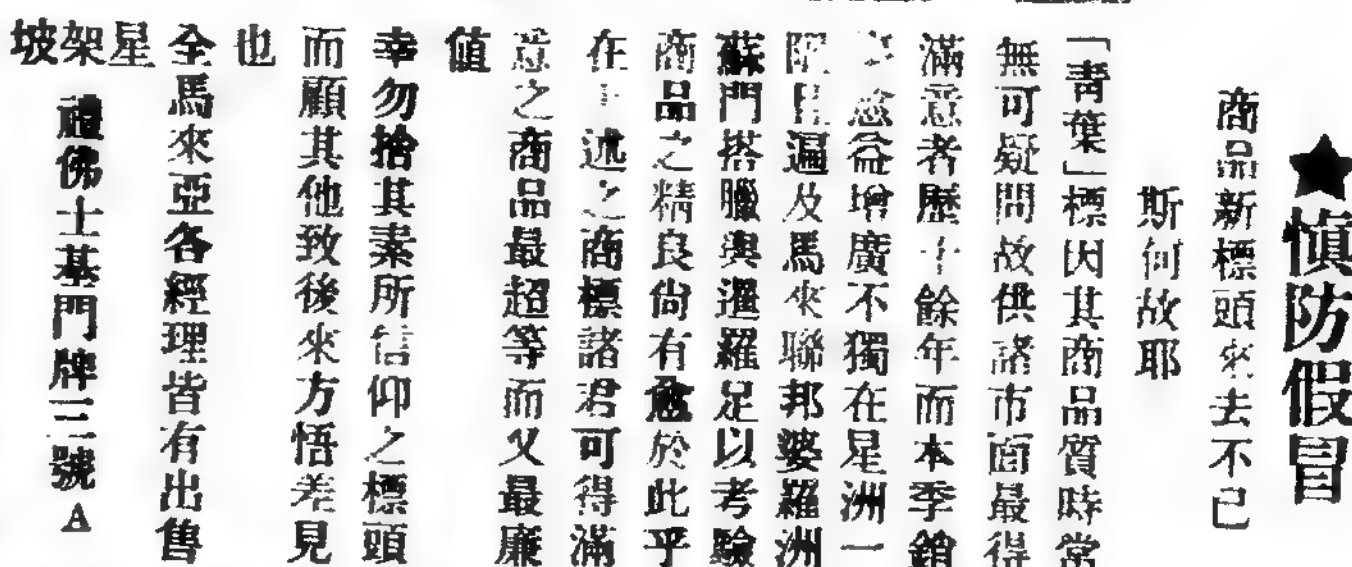 ★慎防假冒
商品新標頭來去不已
斯何故耶
「青葉」標因其商品質時常
無可疑問故供諸市面最得
滿意者歷十餘年而本季銷
愈益增廣不獨在星洲一
隅且遍及馬來聯邦婆羅洲
蘇門搭臘與暹羅足以考驗
商品之精良尙有愈於此乎
在上述之商標諸君可得滿
意之商品最超等而又最廉
值
幸勿捨其素所信仰之標頭
而顧其他致後來方悟差見
也
全馬來亞各經理皆有出售
星架坡
禮佛士基門牌三號A